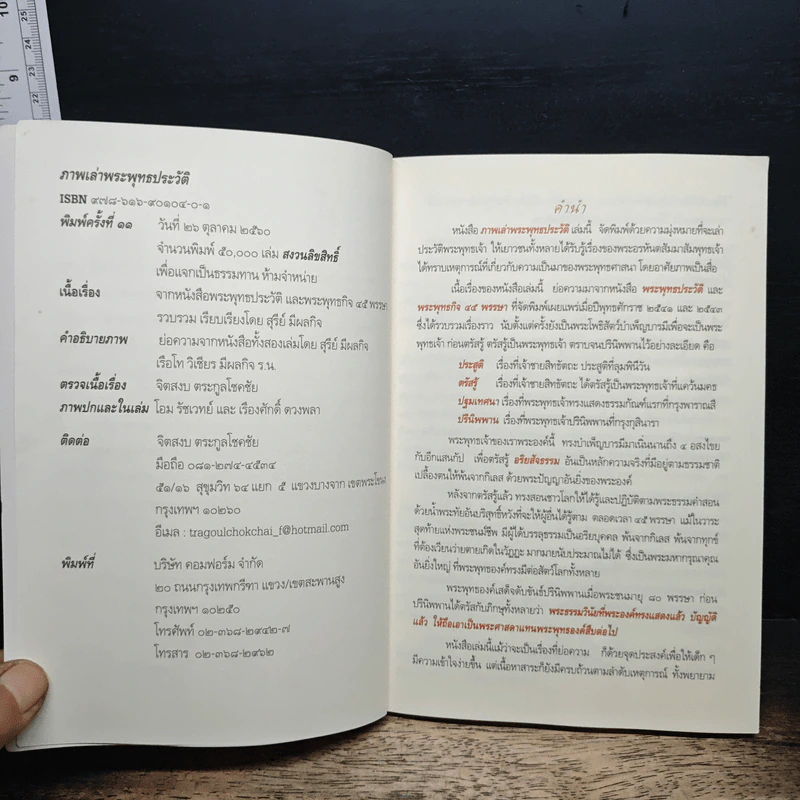 ภาพเล่าพระพุทธประวัติ
ISBN ๙๗๘-๖๑๖-๙๐๑๐๔-๐-๑
พิมพ์ครั้งที่ ๑๑ วันที่ ๒๖ ตุลาคม ๒๕๖๐
จำนวนพิมพ์ ๕๐,๐๐๐ เล่ม สงวนลิขสิทธิ์
เพื่อแจกเป็นธรรมทาน ห้ามจำหน่าย
เนื้อเรื่อง จากหนังสือพระพุทธประวัติ และพระพุทธกิจ ๔๕ พรรษา
รวบรวม เรียบเรียงโดย สุรีย์ มีผลกิจ
คำอธิบายภาพ ย่อความจากหนังสือทั้งสองเล่มโดย สุรีย์ มีผลกิจ
เรือโท วิเชียร มีผลกิจ ร.น.
ตรวจเนื้อเรื่อง จิตสงบ ตระกูลโชคชัย
ภาพปกและในเล่ม โอม รัชเวทย์ และ เรืองศักดิ์ ดวงพลา
ติดต่อ จิตสงบ ตระกูลโชคชัย
มือถือ ๐๘๑-๒๗๔-๔๕๓๔
๕๑/๑๖ สุขุมวิท ๖๔ แยก ๕ แขวงบางจาก เขตพระโขนง
กรุงเทพฯ ๑๐๒๖๐
อีเมล : tragoulchokchai_f@hotmail.com
พิมพ์ที่ บริษัท คอมฟอร์ม จำกัด
๒๐ ถนนกรุงเทพกรีฑา แขวง/เขตสะพานสูง
กรุงเทพฯ ๑๐๒๕๐
โทรศัพท์ ๐๒-๓๖๘-๒๙๔๒-๗
โทรสาร ๐๒-๓๖๘-๒๙๖๒
คำนำ
หนังสือ ภาพเล่าพระพุทธประวัติ เล่มนี้ จัดพิมพ์ด้วยความมุ่งหมายที่จะเล่า
ประวัติพระพุทธเจ้า ให้เยาวชนทั้งหลายได้รับรู้เรื่องของพระอรหันตสัมมาสัมพุทธเจ้า
ได้ทราบเหตุการณ์ที่เกี่ยวกับความเป็นมาของพระพุทธศาสนา โดยอาศัยภาพเป็นสื่อ
เนื้อเรื่องของหนังสือเล่มนี้ ย่อความมาจากหนังสือ พระพุทธประวัติ และ
พระพุทธกิจ ๔๕ พรรษา ที่จัดพิมพ์เผยแพร่เมื่อปีพุทธศักราช ๒๕๔๑ และ ๒๕๔๓
ซึ่งได้รวบรวมเรื่องราว นับตั้งแต่ครั้งยังเป็นพระโพธิสัตว์บำเพ็ญบารมีเพื่อจะเป็นพระ
พุทธเจ้า ก่อนตรัสรู้ ตรัสรู้เป็นพระพุทธเจ้า ตราบจนปรินิพพานไว้อย่างละเอียด คือ
ประสูติ เรื่องที่เจ้าชายสิทธัตถะ ประสูติที่ลุมพินีวัน
ตรัสรู้ เรื่องที่เจ้าชายสิทธัตถะ ได้ตรัสรู้เป็นพระพุทธเจ้าที่แคว้นมคธ
ปฐมเทศนา เรื่องที่พระพุทธเจ้าทรงแสดงธรรมกัณฑ์แรกที่กรุงพาราณสี
ปรินิพพาน เรื่องที่พระพุทธเจ้าปรินิพพานที่กรุงกุสินารา
พระพุทธเจ้าของเราพระองค์นี้ ทรงบำเพ็ญบารมีมาเนิ่นนานถึง ๔ อสงไขย
กับอีกแสนกัป เพื่อตรัสรู้ อริยสัจธรรม อันเป็นหลักความจริงที่มีอยู่ตามธรรมชาติ
เปลื้องตนให้พ้นจากกิเลส ด้วยพระปัญญาอันยิ่งของพระองค์
หลังจากตรัสรู้แล้ว ทรงสอนชาวโลกให้ได้รู้และปฏิบัติตามพระธรรมคำสอน
ด้วยน้ำพระทัยอันบริสุทธิ์หวังที่จะให้ผู้อื่นได้รู้ตาม ตลอดเวลา ๔๕ พรรษา แม้ในวาระ
สุดท้ายแห่งพระชนม์ชีพ มีผู้ได้บรรลุธรรมเป็นอริยบุคคล พ้นจากกิเลส พ้นจากทุกข์
ที่ต้องเวียนว่ายตายเกิดในวัฏฏะ มากมายนับประมาณไม่ได้ ซึ่งเป็นพระมหากรุณาคุณ
อันยิ่งใหญ่ ที่พระพุทธองค์ทรงมีต่อสัตว์โลกทั้งหลาย
พระพุทธองค์เสด็จดับขันธ์ปรินิพพานเมื่อพระชนมายุ ๘๐ พรรษา ก่อน
ปรินิพพานได้ตรัสกับภิกษุทั้งหลายว่า พระธรรมวินัยที่พระองค์ทรงแสดงแล้ว บัญญัติ
แล้ว ให้ถือเอาเป็นพระศาสดาแทนพระพุทธองค์สืบต่อไป
หนังสือเล่มนี้แม้ว่าจะเป็นเรื่องที่ย่อความ ก็ด้วยจุดประสงค์เพื่อให้เด็ก ๆ
มีความเข้าใจง่ายขึ้น แต่เนื้อหาสาระก็ยังมีครบถ้วนตามลำดับเหตุการณ์ ทั้งพยายาม